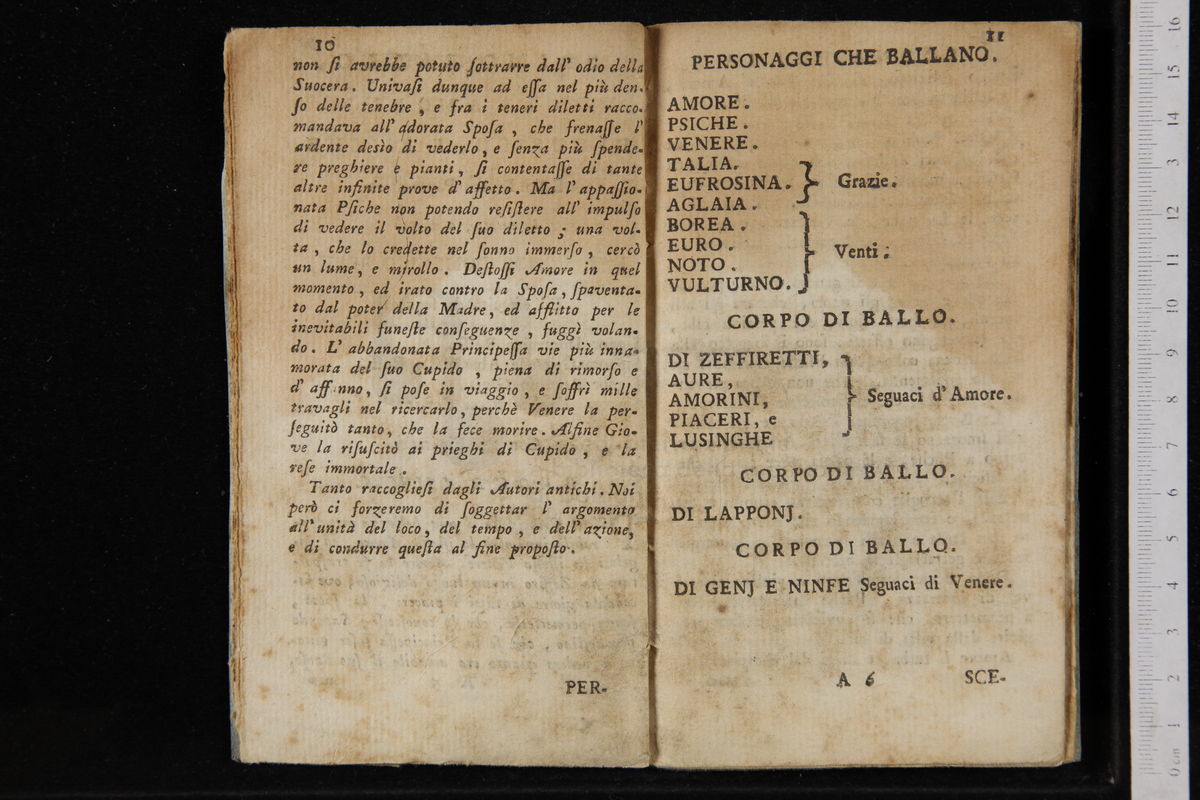 10
non ſi avrebbe potuto ſottrarre dall' odio della
Suocera. Univaſi dunque ad eſſa nel più den-
ſo delle tenebre, e fra i teneri diletti racco-
mandava all' adorata Spoſa, che frenaſſe l'
ardente desìo di vederlo, e ſenza più ſpende-
re preghiere e pianti, ſi contentaſſe di tante
altre infinite prove d' affetto. Ma l' appaſſio-
nata Pſiche non potendo reſiſtere all' impulſo
di vedere il volto del ſuo diletto; una vol-
ta, che lo credette nel ſonno immerſo, cercò
un lume, e mirollo. Deſtoſſi Amore in quel
momento, ed irato contro la Spoſa, ſpaventa-
to dal poter della Madre, ed afflitto per le
inevitabili funeſte conſeguenze, fuggì volan-
do. L' abbandonata Principeſſa vie più inna-
morata del ſuo Cupido, piena di rimorſo e
d' affanno, ſi poſe in viaggio, e ſoffrì mille
travagli nel ricercarlo, perchè Venere la per-
ſeguitò tanto, che la fece morire. Alfine Gio-
ve la riſuſcitò ai prieghi di Cupido, e la
reſe immortale.
Tanto raccoglieſi dagli Autori antichi. Noi
però ci forzeremo di ſoggettar l' argomento
all' unità del loco, del tempo, e dell' azione,
e di condurre queſta al fine propoſto.
PER-
11
PERSONAGGI CHE BALLANO.
AMORE.
PSICHE.
VENERE.
TALIA.
EUFROSINA. } Grazie.
AGLAIA.
BOREA.
EURO.
NOTO. } Venti.
VULTURNO.
CORPO DI BALLO.
DI ZEFFIRETTI,
AURE,
AMORINI, } Seguaci d' Amore.
PIACERI, e
LUSINGHE
CORPO DI BALLO.
DI LAPPONJ.
CORPO DI BALLO.
DI GENJ E NINFE Seguaci di Venere.
A 6 SCE-
16
15
14
13
12
11
10
9
8
7
6
5
4
3
2
1
0 cm